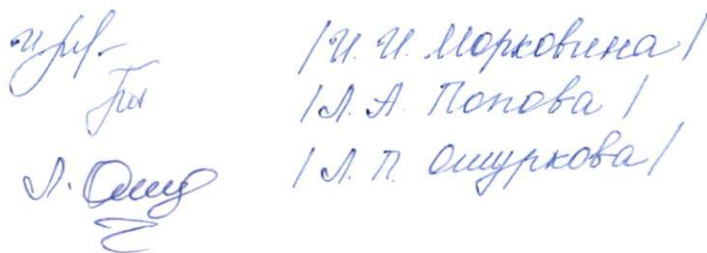 /И. И. Морковина/
/Л. А. Попова/
Л. Ошур /Л. П. Ошуркова/